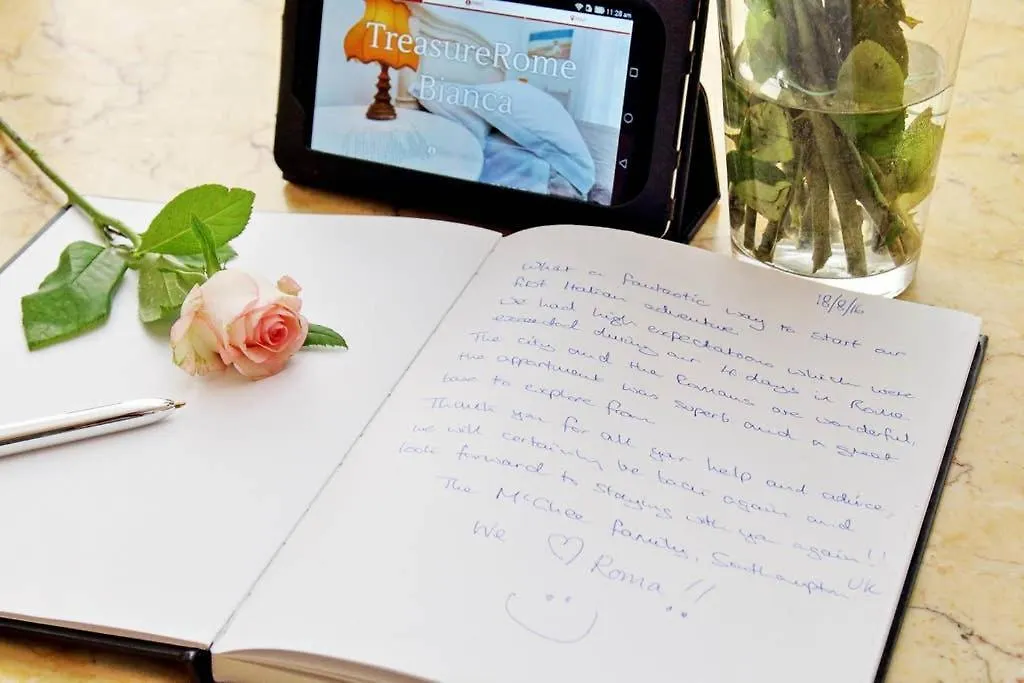 11:28 am
TreasureRome
Bianca
18/8/16
What a fantastic way to start our
first Italian adventure
we had high expectations which were
exceeded during our 4 days in Rome
The city and the Romans are wonderful,
the appartment was superb and a great
base to explore from
Thank you for all your help and advice,
we will certainly be back again and
look forward to staying with you again!!
The McGhee family, Southampton UK
We ♡ Roma!!